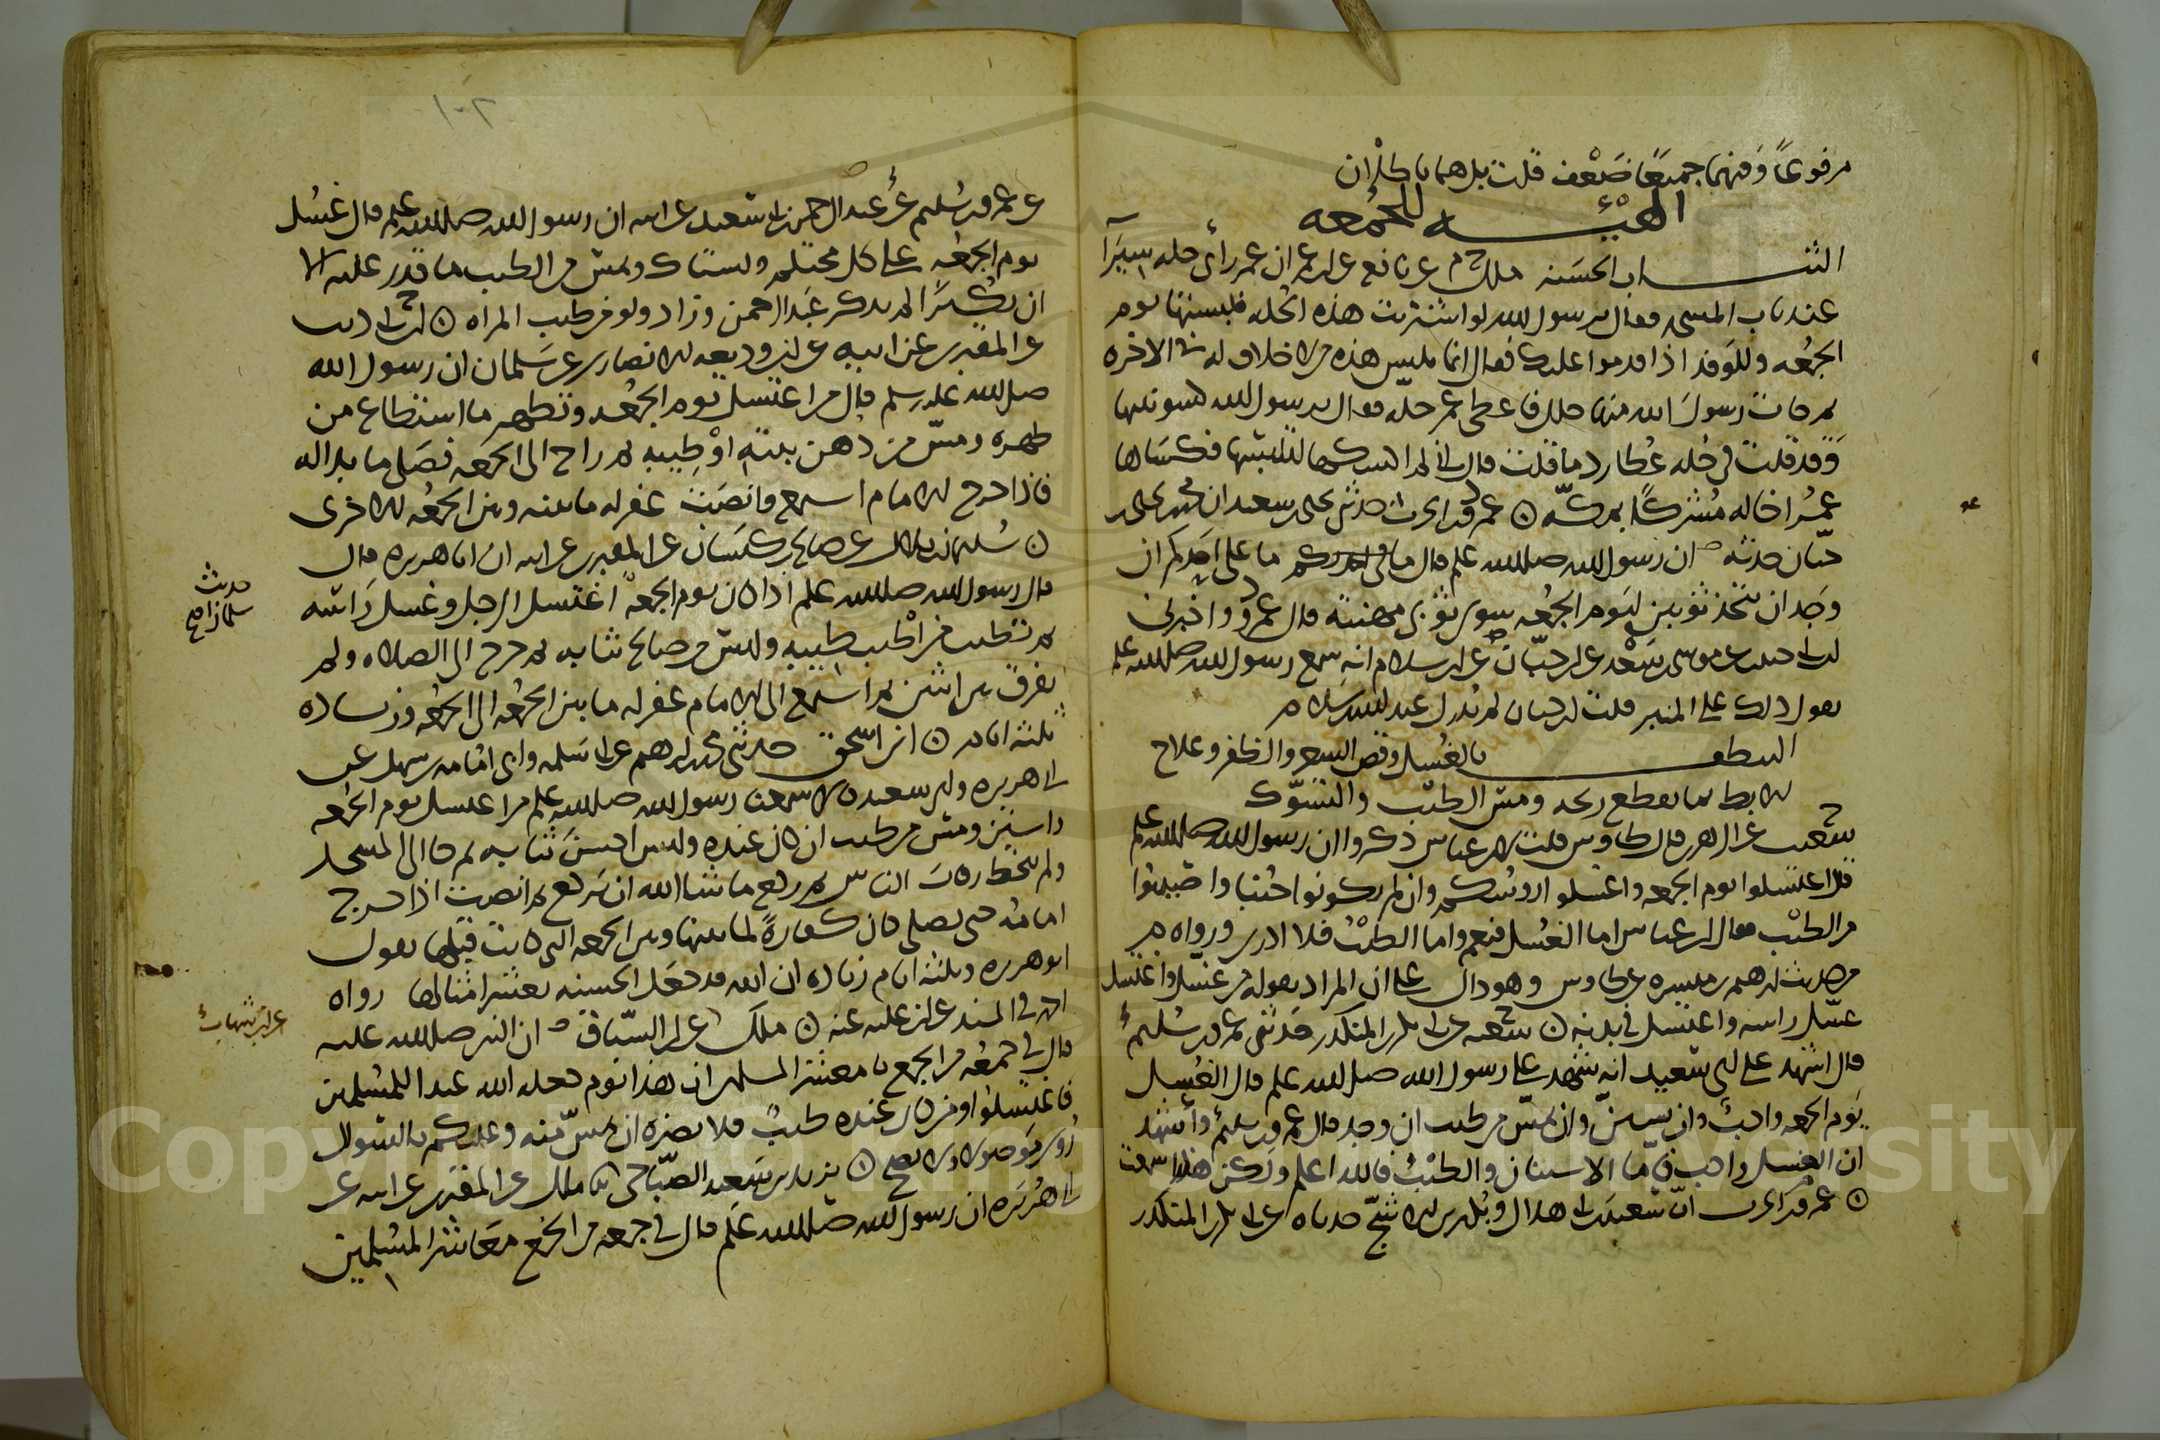 مرفوعاً وفيهما جميعًا ضَعْف قلت بل هما باطلان
الهيئــــــه للجمعه
الثيــــاب الحسنه ملك خ م عن نافع عن ابن عمر ان عمر رأى حله سيرا
عند باب المسجد فقال يرسول الله لو اشتريت هذه الحله فلبستها يوم
الجمعه وللوفد اذا قدموا عليك فقال انما يلبس هذه من لا خلاق له في الاخره
ثم جات رسول الله منها حلل فاعطى عمر حله فقال يرسول الله كسوتنيها
وقد قلت في حله عطارد ما قلت قال اني لم اكسكها لتلبسها فكساها
عمر اخا له مشركًا بمكّه ۞ عمرو بن الحرث حدثني يحيى بن سعيد ان محمد بن يحيى بن
حبّان حدثه ان رسول الله صلى الله عليه وسلم قال ما على احدكم ما على احدكم ان
وجد ان يتخذ ثوبين ليوم الجمعه سوى ثوبي مهنته قال عمرو واخبرني
ابن ابي حبيب عن موسى بن سعد عن ابن حبّان عن ابن سلام انه سمع رسول الله صلى الله عليه وسلم
يقول ذلك على المنبر قلت ابن حبان لم يدرك عبد الله بن سلام
التنظف بالغسل وقص الشعر والظفر وعلاج
الابط بما يقطع ريحه ومس الطيب والتسوّك
شعيب عن الزهري قال طاوس قلت لابن عباس ذكروا ان رسول الله صلى الله عليه وسلم
قال اغتسلوا يوم الجمعه واغسلوا رؤسكم وان لم تكونوا جنبا واصيبوا
من الطيب فقال ابن عباس اما الغسل فنعم واما الطيب فلا ادري ورواه م
من حديث ابرهيم بن ميسره عن طاوس وهو دال على ان المراد بقوله من غسل واغتسل
غسّل راسه واغتسل في بدنه ۞ شعبه عن ابي بكر بن المنكدر حدثني عمرو بن سليم
قال اشهد على ابي سعيد انه شهد على رسول الله صلى الله عليه وسلم قال الغسل
يوم الجمعه واجب وان يستن وان يمس من طيب ان وجد قال عمرو بن سليم وأشهد
ان الغسل واجب فاما الاستنان والطيب فالله اعلم ولكن هكذا سمعت
۞ عمرو بن الحرث انّ سعيد بن ابي هلال وبكير بن الاشجّ حدثاه عن ابي بكر بن المنكدر
١٠٢
عن عمرو بن سليم عن عبد الرحمن بن ابي سعيد عن ابيه ان رسول الله صلى الله عليه وسلم قال غسل
يوم الجمعه على كل محتلم ويستاك ويمس من الطيب ما قدر عليه الا
ان بكيرًا لم يذكر عبد الرحمن وزاد ولو من طيب المراه ۞ ابن ابي ذيب
عن المقبري عن ابيه عن ابن وديعه الانصاري عن سلمان ان رسول الله
صلى الله عليه وسلم قال من اغتسل يوم الجمعه وتطهر ما استطاع من
طهره ومسّ من دُهن بيته او طيبه ثم راح الى الجمعه فصلى ما بدا له
فاذا خرج الامام استمع وانصت غفر له ما بينه وبين الجمعه الاخرى
۞ سليمان بن بلال عن صالح بن كيسان عن المقبري عن ابيه ان ابا هريره قال
قال رسول الله صلى الله عليه وسلم اذا كان يوم الجمعه اغتسل الرجل وغسل راسه
ثم تطيب من اطيب طيبه ولبس من صالح ثيابه ثم خرج الى الصلاه ولم
يفرق بين اثنين ثم استمع الى الامام غفر له ما بين الجمعه الى الجمعه وزياده
ثلثه ايام ۞ ابن اسحق حدثني محمد بن ابرهيم عن ابي سلمه وابي امامه بن سهل عن
ابي هريره وابي سعيد قالا سمعنا رسول الله صلى الله عليه وسلم من اغتسل يوم الجمعه
واستن ومس من طيب ان كان عنده ولبس احسن ثيابه ثم جا الى المسجد
ولم يتخط رقاب الناس ثم ركع ما شا الله ان يركع ثم انصت اذا خرج
امامه حتى يصلي كان كفارةً لما بينها وبين الجمعه التي كانت قبلها يقول
ابو هريره وثلثه ايام زياده ان الله قد جعل الحسنه بعشر امثالها رواه
احمد في المسند عن ابن عليه عنه ۞ ملك عن ابن السبّاق ان النبي صلى الله عليه
قال في جمعه من الجمع يا معشر المسلمين ان هذا يوم جعله الله عيدا للمسلمين
فاغتسلوا ومن كان عنده طيب فلا يضره ان يمسّ منه وعليكم بالسواك
رُوي موصولا ولا يصح ۞ يزيد بن سعيد الصبّاحي ثنا ملك عن المقبري عن ابيه عن
ابي هريره ان رسول الله صلى الله عليه وسلم قال في جمعه من الجمع معاشر المسلمين
حديث
سلمان اصح
عن ابن شهاب